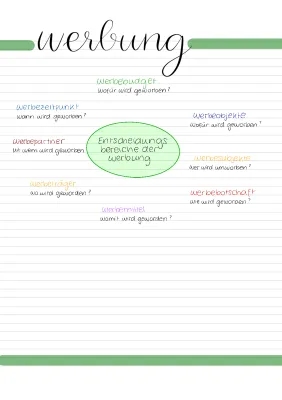 werbung
werbebudget
wofür wird geworben?
werbezeitpunkt
wann wird geworben?
werbeobjekte
wofür wird geworben?
werbepartner
Mit wem wird geworben
Entscheidungs
bereiche der
werbung
werbesubjekte
wer wird umworben?
werbeträger
wo wird geworden?
werbebotschaft
wie wird geworben?
werbemittel
womit wird geworden?